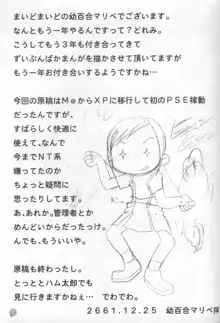 まいどまいどの幼百合マリベでございます。
なんともう一年やるんですって？どれみ。
こうしてもう3年も付き合ってきて
ずいぶんぱまんがを描かせて頂きました。
もう一年お付き合いするようですかね…
今回の原稿はＭｅからＸＰに移行して初のＰＳＥ稼動
だったんですが、
すばらしく快適に
使えて、なんで
今までＮＴ系
嫌ってたのか
ちょっと疑問に
思ったりしてます。
あ、あれか。管理者とか
めんどいからだったっけ。
んでも、もういいや。
原稿も終わったし。
とっととハム太郎でも
見に行きますかねぇ… でわでわ。
２６６１.１２.２５　幼百合マリベ拝